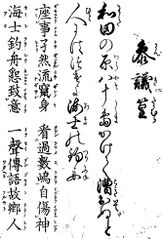 參議篁
和田の原八十嶋かけて漕出ぬと
人にはつげよ海士の釣舟
座事孑然流竄身 看過數嶋自傷神
海士釣舟懃致意 一聲傳語故鄉人